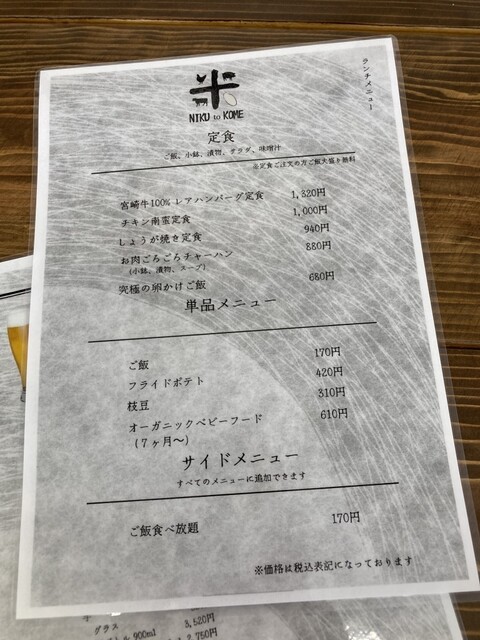 ランチメニュー
米
NIKU to KOME
定食
ご飯、小鉢、漬物、サラダ、味噌汁
※定食ご注文の方ご飯大盛り無料
宮崎牛100% レアハンバーグ定食 1,320円
チキン南蛮定食 1,000円
しょうが焼き定食 940円
お肉ごろごろチャーハン 880円
(小鉢、漬物、スープ)
究極の卵かけご飯 680円
単品メニュー
ご飯 170円
フライドポテト 420円
枝豆 310円
オーガニックベビーフード 610円
(7ヶ月〜)
サイドメニュー
すべてのメニューに追加できます
ご飯食べ放題 170円
※価格は税込表記になっております
グラス 3,520円
900ml 2,750円